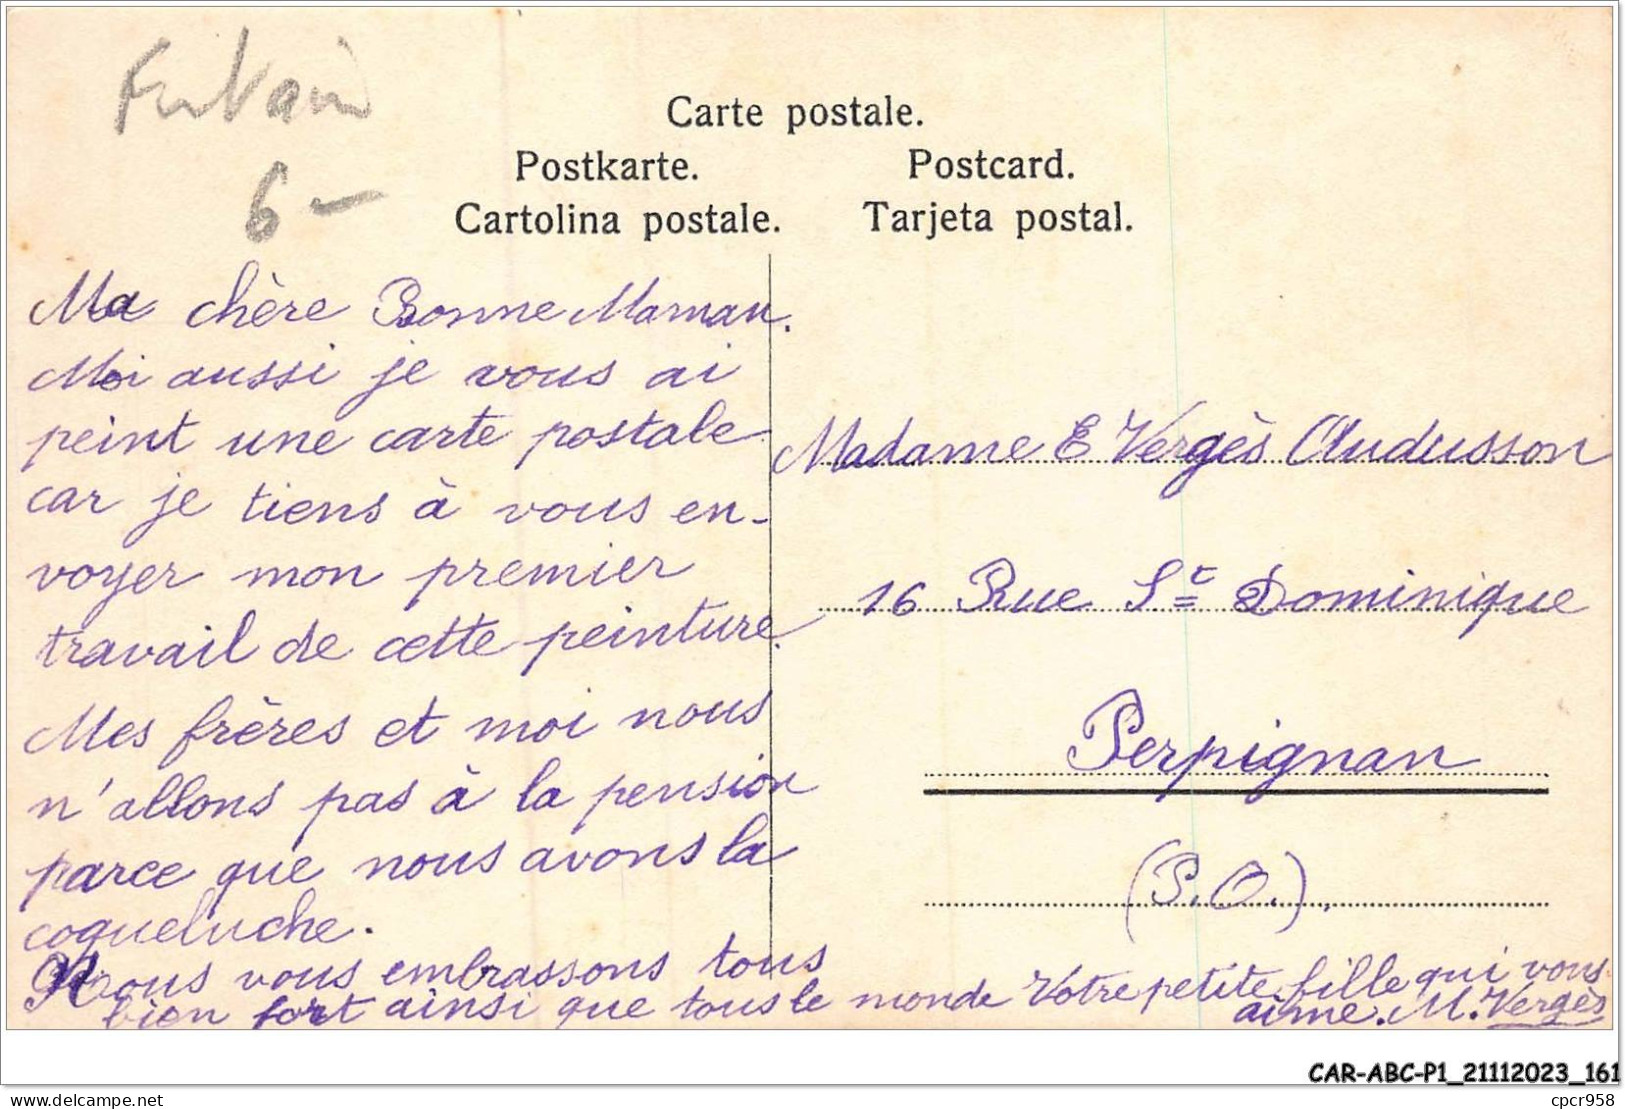 Carte postale.
Postkarte. Postcard.
Cartolina postale. Tarjeta postal.
6 -
Ma chère Bonne Maman.
Moi aussi je vous ai
peint une carte postale
car je tiens à vous en-
voyer mon premier
travail de cette peinture.
Mes frères et moi nous
n'allons pas à la pension
parce que nous avons la
coqueluche.
Nous vous embrassons tous
bien fort ainsi que tous le monde Votre petite fille qui vous
aime. M. Vergès
Madame E Vergès Audusson
16 Rue St Dominique
Perpignan
(P.O.)
CAR-ABC-P1_21112023_161
cpcr958